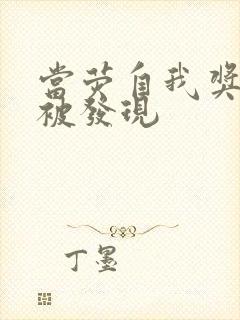 當荧自我獎
被發現
丁墨